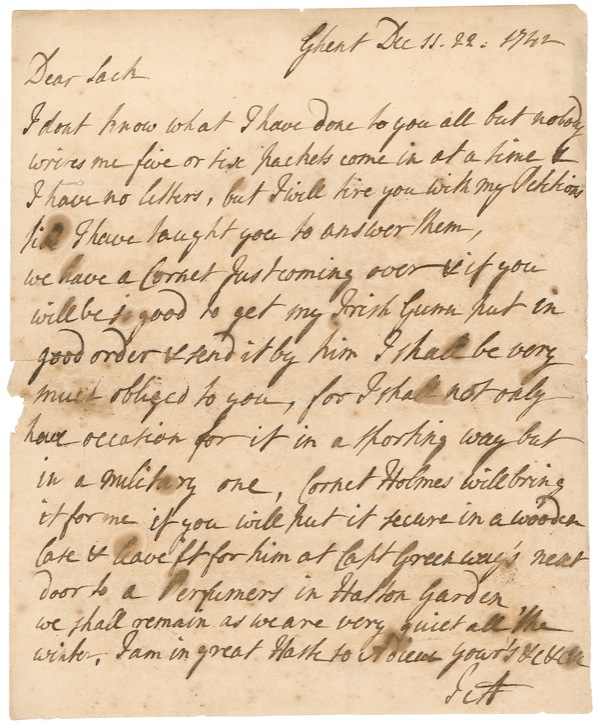 Ghent Dec 11. 22: 1742
Dear Jack
I dont know what I have done to you all but nobody
writes me five or six packets come in at a time &
I have no letters, but I will tire you with my Petitions
till I have taught you to answer them,
we have a Cornet Just coming over & if you
will be so good to get my Irish Gunn put in
good order & send it by him I shall be very
much obliged to you, for I shall not only
have occation for it in a sporting way but
in a military one, Cornet Holmes will bring
it for me if you will put it secure in a wooden
Case & leave it for him at Capt Greenway's next
door to a Perfumers in Hatton Garden
we shall remain as we are very quiet all the
winter. I am in great Hast so Adieu your's &c &c &c